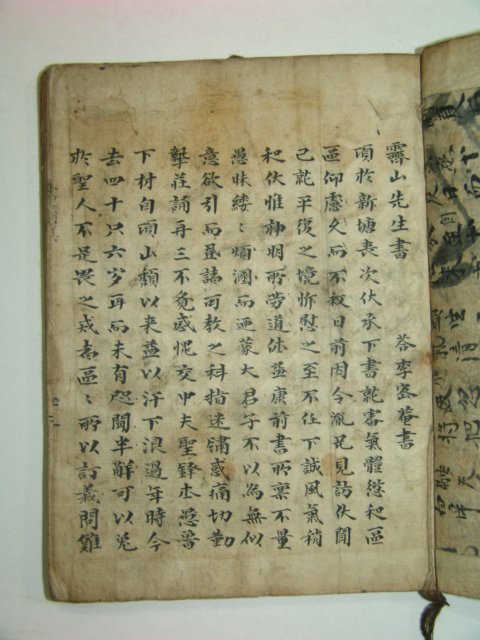 霽山先生書
答李密菴書
頃於新塘喪次伏承下書就審氣體愆和區
區仰慮久而不敢日前因令胤兄見訪伏聞
已就平復之境忻慰之至不任下誠風氣稍
和伏惟神明所勞道体益康前書所稟不量
愚昧縷〻煩溷而亟蒙大君子不以為無似
意欲引而置諸可教之科指迷鐫惑痛切勤
摯莊誦再三不覺感愧交中夫聖鐸本愚魯
下材自頭山頹以来益以汗下浪過年時今
去四十只六岁耳而未有咫聞半解可以免
於聖人不足畏之戒玆區〻所以討義問難